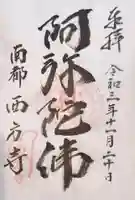 奉拝
令和三年十一月二十日
阿弥陀佛
南都 西方寺